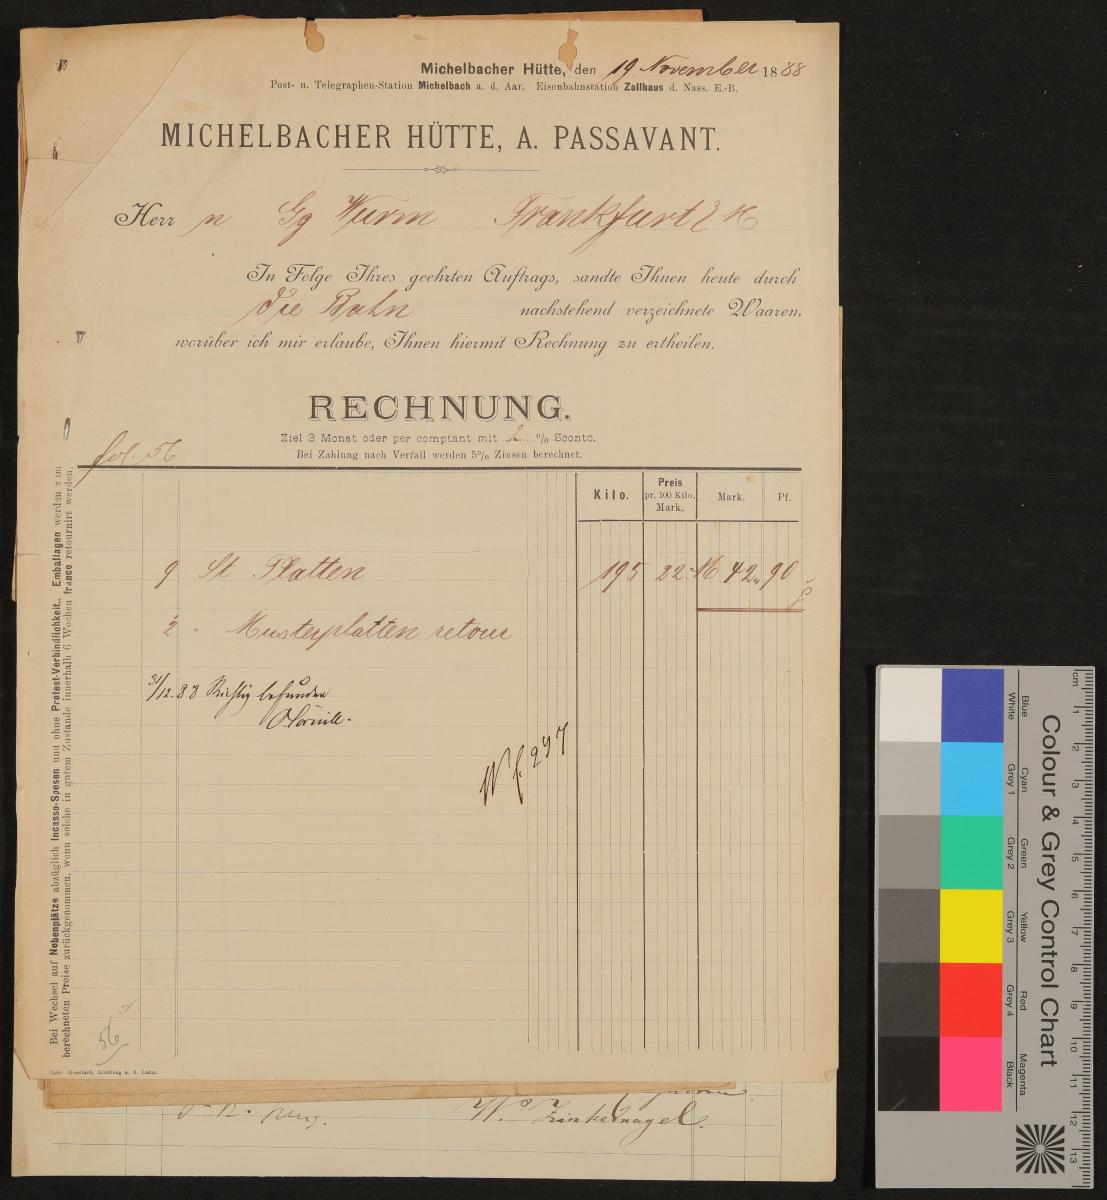 Michelbacher Hütte, den 19 November 1888
Post- u. Telegraphen-Station Michelbach a. d. Aar. Eisenbahnstation Zollhaus d. Nass. E.-B.
MICHELBACHER HÜTTE, A. PASSAVANT.
Herrn Gg Wurm Frankfurt a/M
In Folge Ihres geehrten Auftrags, sandte Ihnen heute durch
die Bahn nachstehend verzeichnete Waaren,
worüber ich mir erlaube, Ihnen hiermit Rechnung zu ertheilen.
RECHNUNG.
Ziel 3 Monat oder per comptant mit 2 % Sconto.
Bei Zahlung nach Verfall werden 5% Zinsen berechnet.
fol. 56
Kilo. Preis pr. 100 Kilo. Mark. Mark. Pf.
9 St Platten 195 22.- M 42,, 90
2 " Musterplatten retour
31/12.88 Richtig befunden
W f. 297
Bei Wechsel auf Nebenplätze abzüglich Incasso-Spesen und ohne Protest-Verbindlichkeit. Emballagen werden zum
berechneten Preise zurückgenommen, wenn solche in gutem Zustande innerhalb 6 Wochen franco retournirt werden.
56
Gebr. Goerlach, Limburg a. d. Lahn.
W. Zinkernagel.
Colour & Grey Control Chart
Blue Cyan Green Yellow Red Magenta
White Grey 1 Grey 2 Grey 3 Grey 4 Black
cm 1 2 3 4 5 6 7 8 9 10 11 12 13